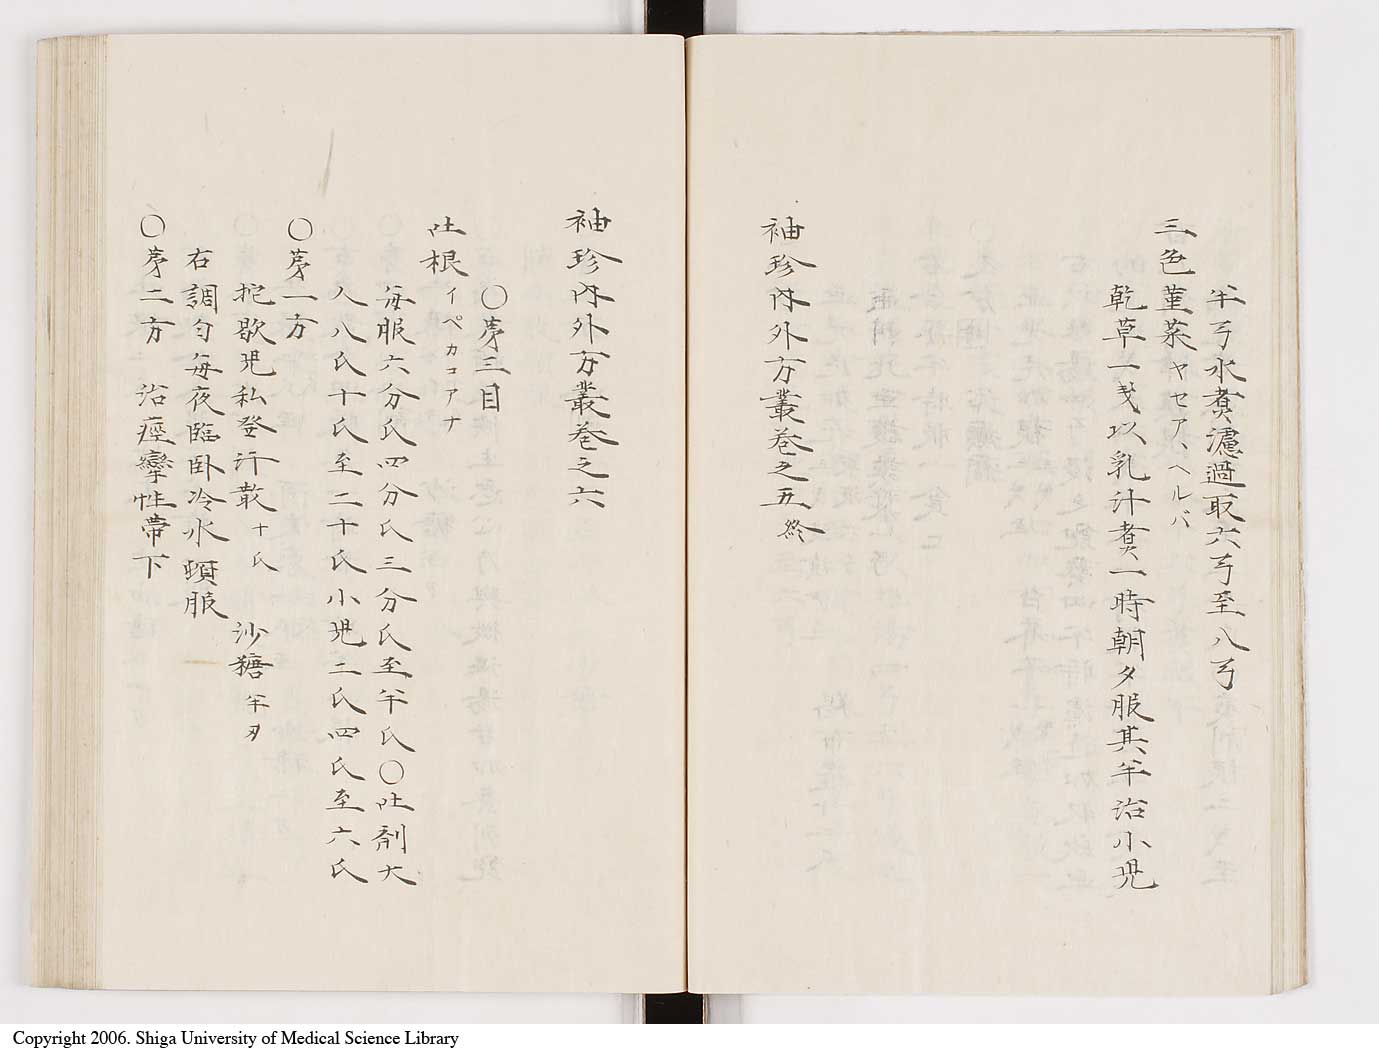 半弓水煮濾過取六弓至八弓
三色菫菜 ヤセア、ヘルバ
乾草一戔以乳汁煮一時朝夕服其半治小児
袖珍内外方叢巻之五 終
袖珍内外方叢巻之六
〇第三目
吐根 イペカコアナ
毎服六分氏四分氏三分氏至半氏〇吐剤大
人八氏十氏至二十氏小児二氏四氏至六氏
〇第一方
挖歇児私登汗散 十氏 沙糖 半刃
右調匀毎夜臨臥冷水頓服
〇第二方 治痙攣性帯下
Copyright 2006. Shiga University of Medical Science Library